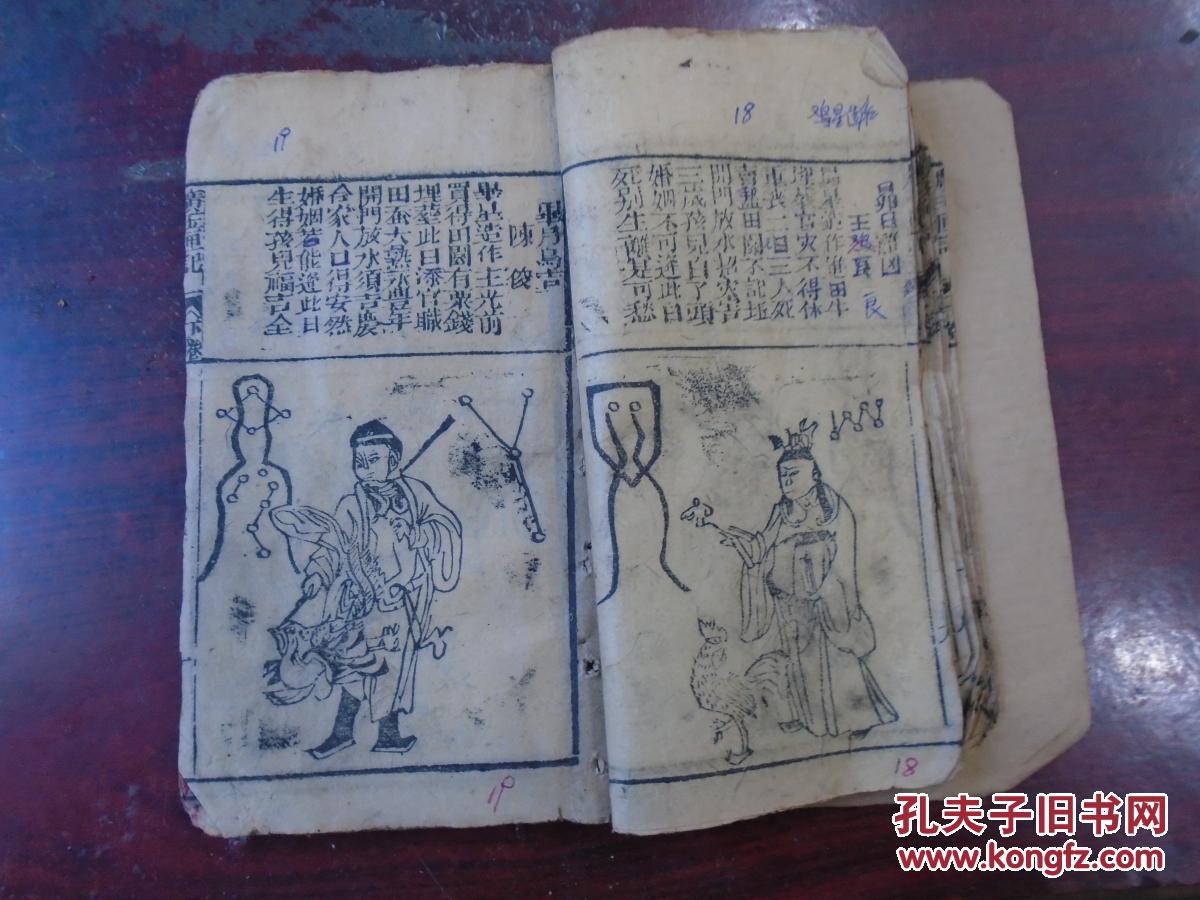 18
昴日雞凶
王良
良
昴星造作進田牛
埋葬官災不得休
重喪二日三人死
賣盡田園不記坵
開門放水招災害
三歲孩兒白了頭
婚姻不可逢此日
死別生離是可愁
18
19
畢月烏吉
陳俊
畢星造作主光前
買得田園有粟錢
埋葬此日添官職
田蚕大熟永豐年
開門放水須吉慶
合家人口得安然
婚姻若能逢此日
生得孩兒福吉全
19
孔夫子旧书网
www.kongfz.com